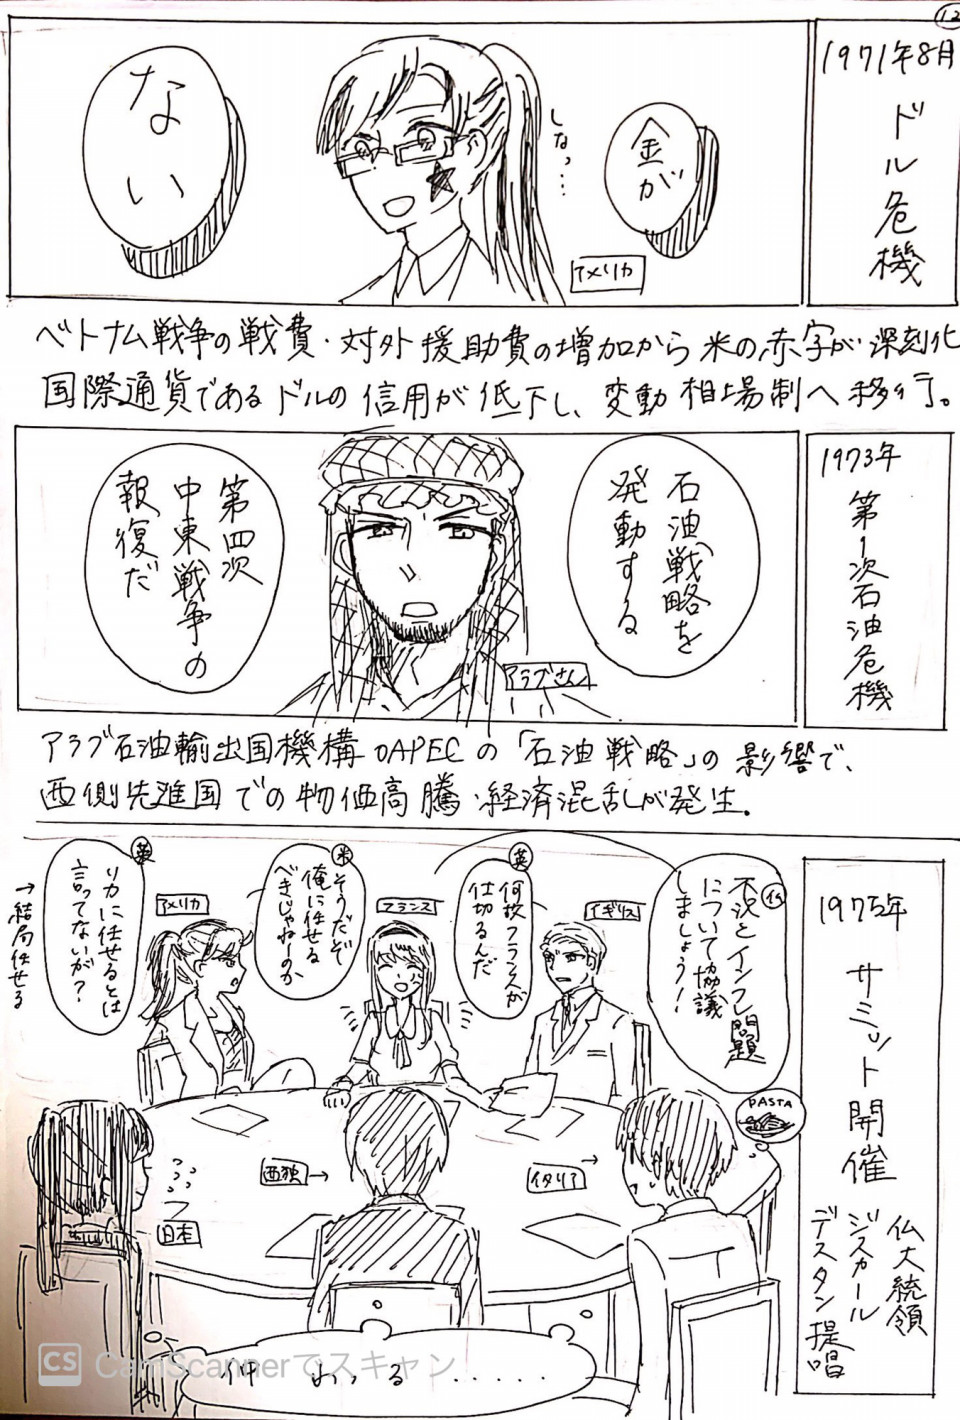 12
1971年8月
ドル危機
金が
しなっ…
ない
アメリカ
ベトナム戦争の戦費・対外援助費の増加から米の赤字が深刻化
国際通貨であるドルの信用が低下し、変動相場制へ移行。
1973年
第1次石油危機
石油戦略を
発動する
第四次
中東戦争の
報復だ
アラブさん
アラブ石油輸出国機構OAPECの「石油戦略」の影響で、
西側先進国での物価高騰・経済混乱が発生。
1975年
サミット開催
仏大統領
ジスカール
デスタン提唱
仏
不況とインフレ問題
について協議
しましょう!
イギリス
英
何故フランスが
仕切るんだ
フランス
米
そうだぞ
俺に任せる
べきじゃねのか
アメリカ
英
リカに任せるとは
言ってないが?
→結局任せる
PASTA
イタリア→
西独→
日本
仲わっる......
CS CamScannerでスキャン